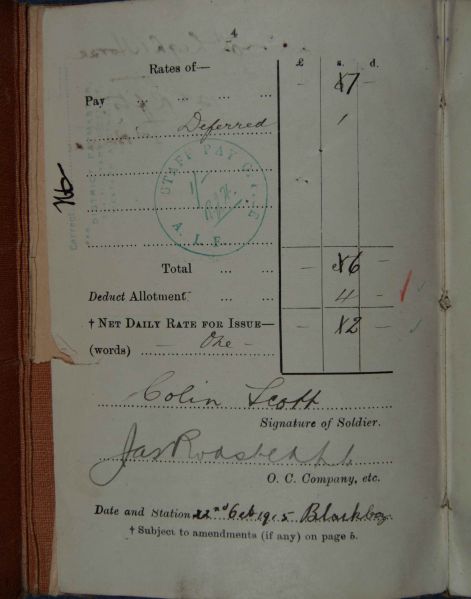 4
Rates of— £ s. d.
Pay ... ... ... – 7 –
Deferred 1
STAFF PAY OFFICE
A.I.F.
Total ... ... – 6 –
Deduct Allotment ... ... 4 –
† NET DAILY RATE FOR ISSUE— – 2 –
(words) – One –
Colin Scott
Signature of Soldier.
O. C. Company, etc.
Date and Station 22nd Feb 1915 Blackboy
† Subject to amendments (if any) on page 5.